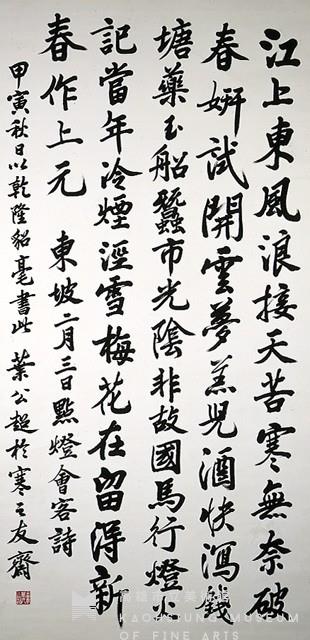 江上東風浪接天苦寒無奈破
春妍試開雲夢羔兒酒快瀉錢
塘藥玉船蠶市光陰非故國馬行燈火
記當年冷煙溼雪梅花在留得新
春作上元　東坡二月三日點燈會客詩
甲寅秋日以乾隆貂毫書此　葉公超於寒之友齋
高雄市立美術館
KAOHSIUNG MUSEUM
OF FINE ARTS